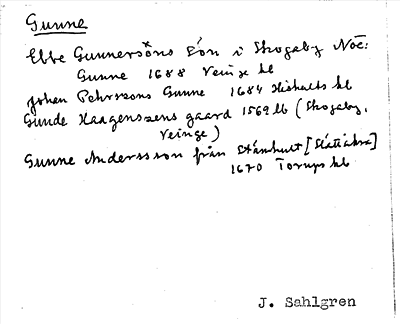 Gunne
Ebbe Gunnersöns Sön i Skogaby Noē:
Gunne 1688 Veinge kb
Johan Pehrsons Gunne 1684 Hishults kb
Gunde Haagenssens gaard 1569 lb (Skogaby,
Veinge)
Gunne Anderssson från Stämhult [Slättåkra]
1670 Torups kb
J. Sahlgren